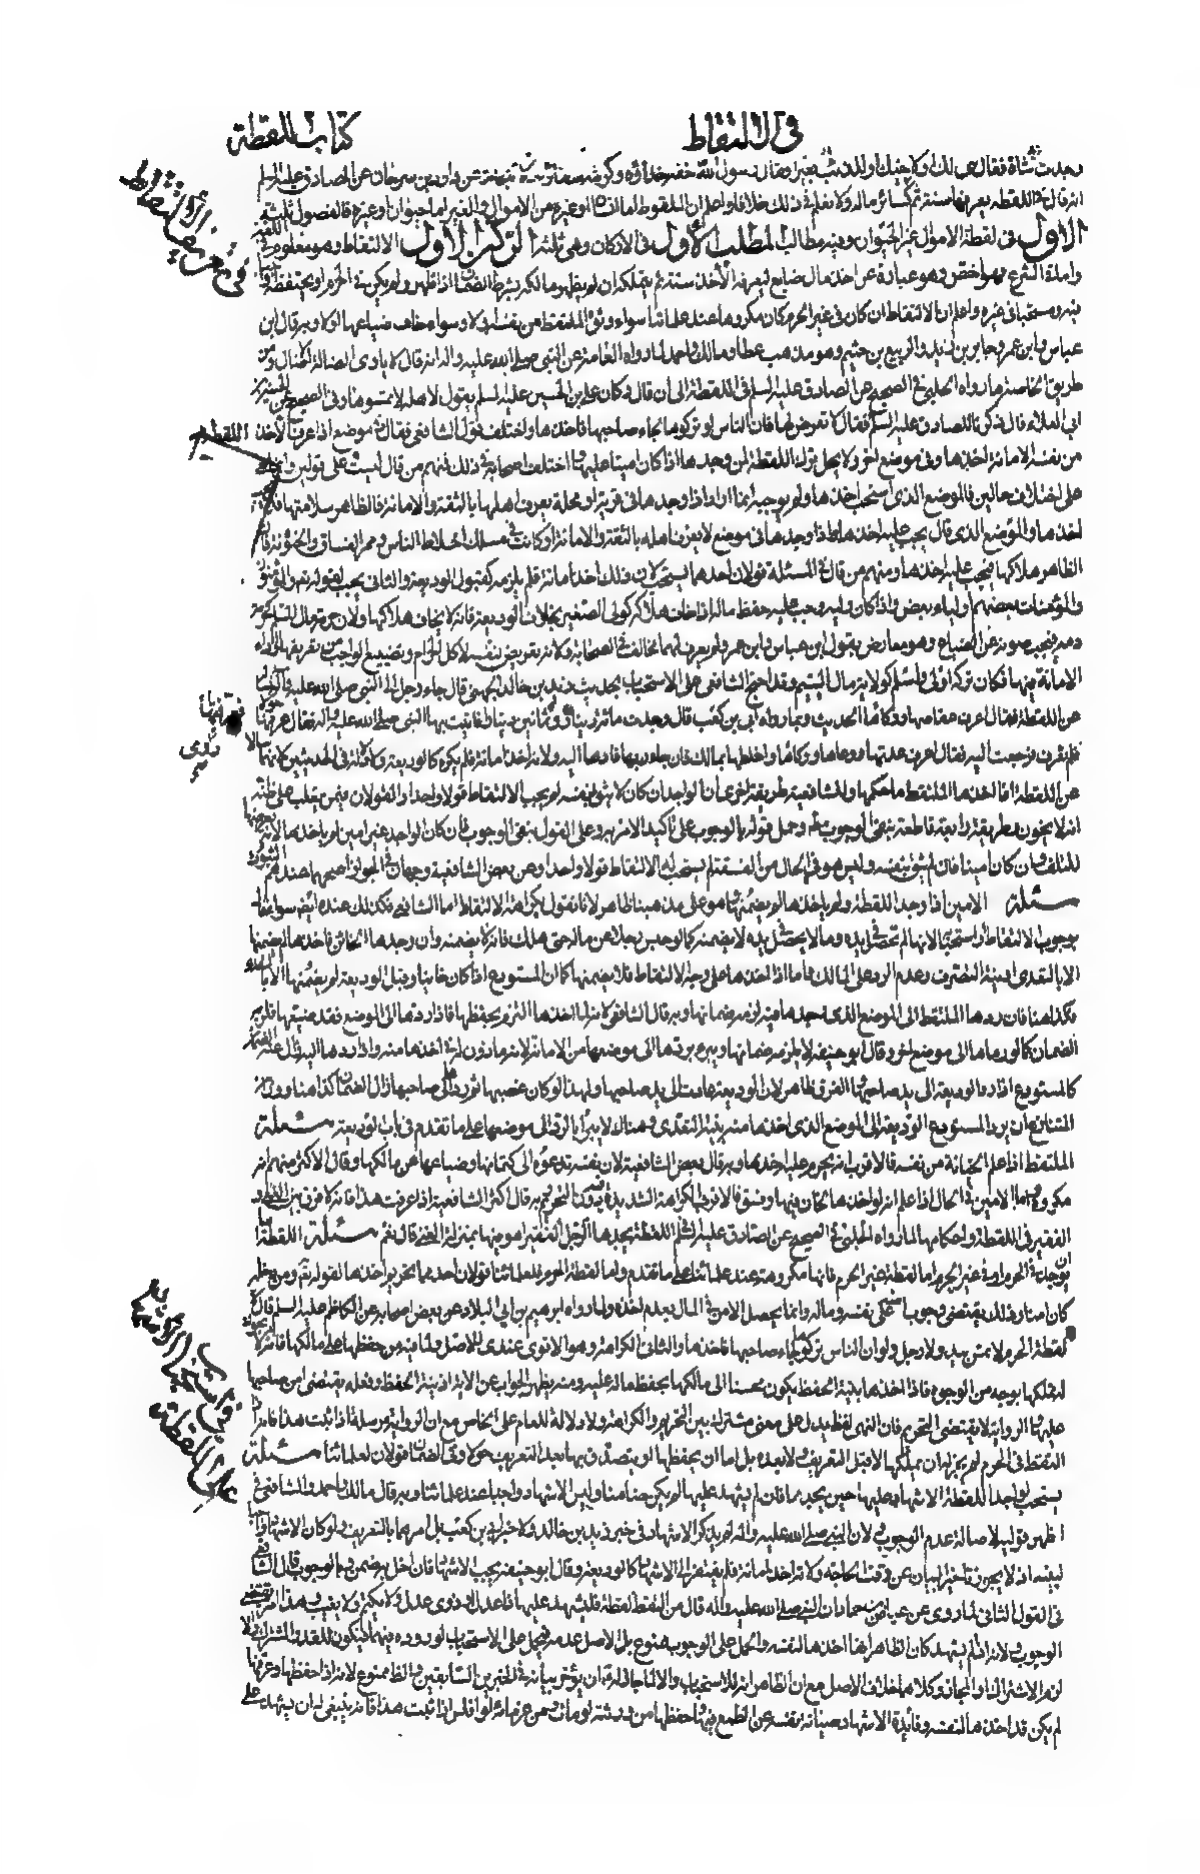 في الالتقاط
كتاب اللقطة
وجدت شاة فقال هي لك او لاخيك او للذئب بعيرا فقال رسول الله خفه حذاؤه وكرشه سقاؤه عن الصادق عليه السلم
اللقطة يعرفها سنة ثم كسائر ماله ولا نعلم في ذلك خلافا واعلم ان الملقوط اما انسان او غيره من الاموال والغير اما حيوان او غيره فالفصول ثلثة
الاول في لقطة الاموال غير الحيوان وفيه مطالب المطلب الاول في الاركان وهي ثلثة الركن الاول الالتقاط وهو معلوم
واما في الشرع فهو اخص وهو عبارة عن اخذ مال ضايع ليعرفه الاخذ سنة ثم يتملكه ان لم يظهر مالكه بشرط الضمان اذا ظهر ولم يكن في الحرم او يحتفظه
فيه ومستحبا في غيره واعلم ان الالتقاط ان كان في غير الحرم كان مكروها عند علمائنا سواء وثق الملتقط من نفسه او لا وسواء خاف ضياعها او لا وبه قال ابن
عباس وابن عمر وجابر بن زيد والربيع بن خثيم وهو مذهب عطا ومالك واحمد لما رواه العامة عن النبي صلى الله عليه واله انه قال لا ياوى الضالة الا ضال ومن
طريق الخاصة ما رواه الحلبي في الصحيح عن الصادق عليه السلم في اللقطة الى ان قال وكان علي بن الحسين عليه السلم يقول لاهله لا تمسوها وفي الصحيح عن الحسين بن
ابي العلاء قال ذكرنا للصادق عليه السلم فقال لا تعرض لها فان الناس لو تركوها لجاء صاحبها فاخذها واختلف قول الشافعي فقال في موضع اذا عرف الاخذ اللقطة
من نفسه الامانة اخذها وفي موضع اخر ولا يحل ترك اللقطة لمن وجدها اذا كان امينا عليها واختلف اصحابه في ذلك فمنهم من قال ليست على قولين وانما
على اختلاف حالين فالموضع الذي استحب اخذها ولم يوجبه انما اراد اذا وجدها في قرية او محلة يعرف اهلها بالثقة والامانة فالظاهر سلامتها
اخذها والموضع الذي قال يجب عليه اخذها اذا وجدها في موضع لا يعرف اهله بالثقة والامانة او كانت في مسلك اخلاط الناس وممر الفساق والخونة فان
الظاهر هلاكها فيجب عليه اخذها ومنهم من قال في المسئلة قولان احدهما يستحب لان ذلك اخذ امانة فلم يلزمه كقبول الوديعة والثاني يجب لقوله تعالى والمؤمنون
والمؤمنات بعضهم اولياء بعض واذا كان وليه وجب عليه حفظ ماله اذا خاف هلاكه كولي الصغير بخلاف الوديعة فانه لا يخاف هلاكها ولان حرمة مال المسلم كحرمة
دمه فيجب صونه عن الضياع وهو معارض بقول ابن عباس وابن عمر ولم يعرف لهما مخالف في الصحابة ولانه تعريض نفسه لاكل الحرام وتضييع الواجب من تعريفها واداء
الامانة فيها فكان تركه اولى واسلم كولاية مال اليتيم وقد احتج الشافعي على الاستحباب بحديث زيد بن خالد الجهني قال جاء رجل الى النبي صلى الله عليه واله
عن اللقطة فقال اعرف عفاصها ووكاءها الحديث وبما رواه ابي بن كعب قال وجدت مائة دينار وثمانين دينارا فاتيت بها النبي صلى الله عليه واله فقال عرفها
فلم تعرف فرجعت اليه فقال اعرف عدتها ووعاها ووكاءها واخلطها بمالك فان جاء ربها فادها اليه ولانه اخذ امانة فلم يكره كالوديعة
عن اللقطة اذا اخذها الملتقط ما حكمها وللشافعية طريقة اخرى ان الواجد ان كان لا يثق بنفسه لم يجب الالتقاط قولا واحدا والقولان فيمن يغلب على ظنه
انه لا يخون وطريقة رابعة قاطعة بنفي الوجوب وحمل قوله بالوجوب على تاكيد الامر به وعلى القول بنفي الوجوب فان كان الواجد غير امين لم ياخذها
للتلف وان كان امينا فان لم يثق بنفسه وليس هو في الحال من الفسقة لم يستحب له الالتقاط قولا واحدا وعن بعض الشافعية وجهان في الجواز اصحهما عندهم
مسئلة الامين اذا وجد اللقطة ولم ياخذها لم يضمنها كما هو على مذهبنا ظاهر لانا نقول بكراهة الالتقاط اما الشافعي فكذلك عنده ايضا سواء قلنا
بوجوب الالتقاط او استحبابه لانها لم تحصل في يده وما لا يحصل في يده لا يضمنه كما لو حبس رجلا عن ماله حتى هلك فانه لا يضمنه وان وجدها الخائن فاخذها لم يضمنها
الا بالتعدي او بنية التصرف وعدم الرد على المالك فاما اذا اخذها على وجه الالتقاط فلا يضمنها كما ان المستودع اذا كان خاينا وقبل الوديعة لم يضمنها الا بالتعدي
كذا هنا فان ردها الملتقط الى الموضع الذي وجدها فيه لزمه ضمانها وبه قال الشافعي لانه لما اخذها التزم بحفظها فاذا ردها الى الموضع فقد ضيعها فلزمه
الضمان كما لو رماها الى موضع اخر وقال ابو حنيفة لا يلزمه ضمانها ويبرء بردها الى موضعها من الامانة لانه ماذون له في اخذها منه واذا ردها اليه زال عنه الضمان
كالمستودع اذا رد الوديعة الى يد صاحبها والفرق ظاهر لان الوديعة عادت الى يد صاحبها ولهذا لو كان غصبها ثم ردها الى صاحبها زال الضمان كذا هنا وزانه
المتنازع ان يرد المستودع الوديعة الى الموضع الذي اخذها منه بنية التعدي وهناك لا يبرأ بالرد الى موضعها على ما تقدم في باب الوديعة مسئلة
الملتقط اذا علم الخيانة من نفسه فالاقرب انه يحرم عليه اخذها وبه قال بعض الشافعية لان نفسه تدعوه الى كتمانها وضياعها عن مالكها وقال الاكثر منهم انه
مكروه اما الامين في الحال اذا علم انه لو اخذها لخان فيها وفسق فالاقرب الكراهة الشديدة فيه دون التحريم وبه قال اكثر الشافعية اذا عرفت هذا فانه لا فرق بين الغني و
الفقير في اللقطة واحكامها لما رواه الحلبي في الصحيح عن الصادق عليه السلم في اللقطة يجدها الرجل الفقير اهو فيها بمنزلة الغني قال نعم مسئلة اللقطة
توجد في الحرم او في غير الحرم اما لقطة غير الحرم فانها مكروهة عند علمائنا على ما تقدم واما لقطة الحرم فلعلمائنا قولان احدهما تحريم اخذها لقوله تعالى ومن دخله
كان امنا وذلك يقتضي وجوب امنه على نفسه وماله وانما يحصل الامن في المال بعدم اخذه ولما رواه ابرهيم بن ابي البلاد عن بعض اصحابه عن الكاظم عليه السلم قال
لقطة الحرم لا تمس بيد ولا رجل ولو ان الناس تركوها لجاء صاحبها فاخذها والثاني الكراهة وهو الاقوى عندي للاصل ولما فيه من حفظها على مالكها فانه لا يجوز
تملكها بوجه من الوجوه فاذا اخذها بنية الحفظ يكون محسنا الى مالكها بحفظ ماله عليه ومنه يظهر الجواب عن الاية اذ بنية الحفظ وفعله يقتضي امن صاحبها
عليها والرواية لا يقتضي التحريم فان النهي لفظ يدل على معنى مشترك بين التحريم والكراهة ولا دلالة للعام على الخاص مع ان الرواية مرسلة اذا ثبت هذا فانه
التقط في الحرم لم يجز له ان يملكها لا قبل التعريف ولا بعده بل اما ان يحفظها او يتصدق بها بعد التعريف حولا وفي الضمان قولان لعلمائنا مسئلة
يستحب لواجد اللقطة الاشهاد عليها حين يجدها فان لم يشهد عليها لم يكن ضامنا وليس الاشهاد واجبا عند علمائنا وبه قال مالك واحمد والشافعي في
اظهر قوليه لاصالة عدم الوجوب ولان النبي صلى الله عليه واله لم يذكر الاشهاد في خبر زيد بن خالد ولا خبر ابي بن كعب بل امرهما بالتعريف ولو كان الاشهاد واجبا
لبينه اذ لا يجوز تاخير البيان عن وقت الحاجة ولانه اخذ امانة فلم يفتقر الى الاشهاد كالوديعة وقال ابو حنيفة يجب الاشهاد فان اخل به ضمن وبالوجوب قال الشافعي
في القول الثاني لما روى عن عياض بن حماد ان النبي صلى الله عليه واله قال من التقط لقطة فليشهد عليها ذا عدل او ذوى عدل ولا يكتم ولا يغيب وهذا امر يقتضي
الوجوب ولانه اذا لم يشهد كان الظاهر انه اخذها لنفسه والحمل على الوجوب ممنوع بل الاصل عدمه فيحمل على الاستحباب لوروده فيهما فيكون للقدر المشترك والا
لزم الاشتراك او المجاز وكلاهما خلاف الاصل مع ان الظاهر انه للاستحباب والا لما جاز له ان يؤخر بيانه في الخبرين السابقين والظاهر ممنوع لانه اذا حفظها وعرفها
لم يكن قد اخذها لنفسه وفائدة الاشهاد صيانة نفسه عن الطمع فيها وحفظها من ورثته لو مات ومن غرمائه لو افلس اذا ثبت هذا فانه ينبغي له ان يشهد على